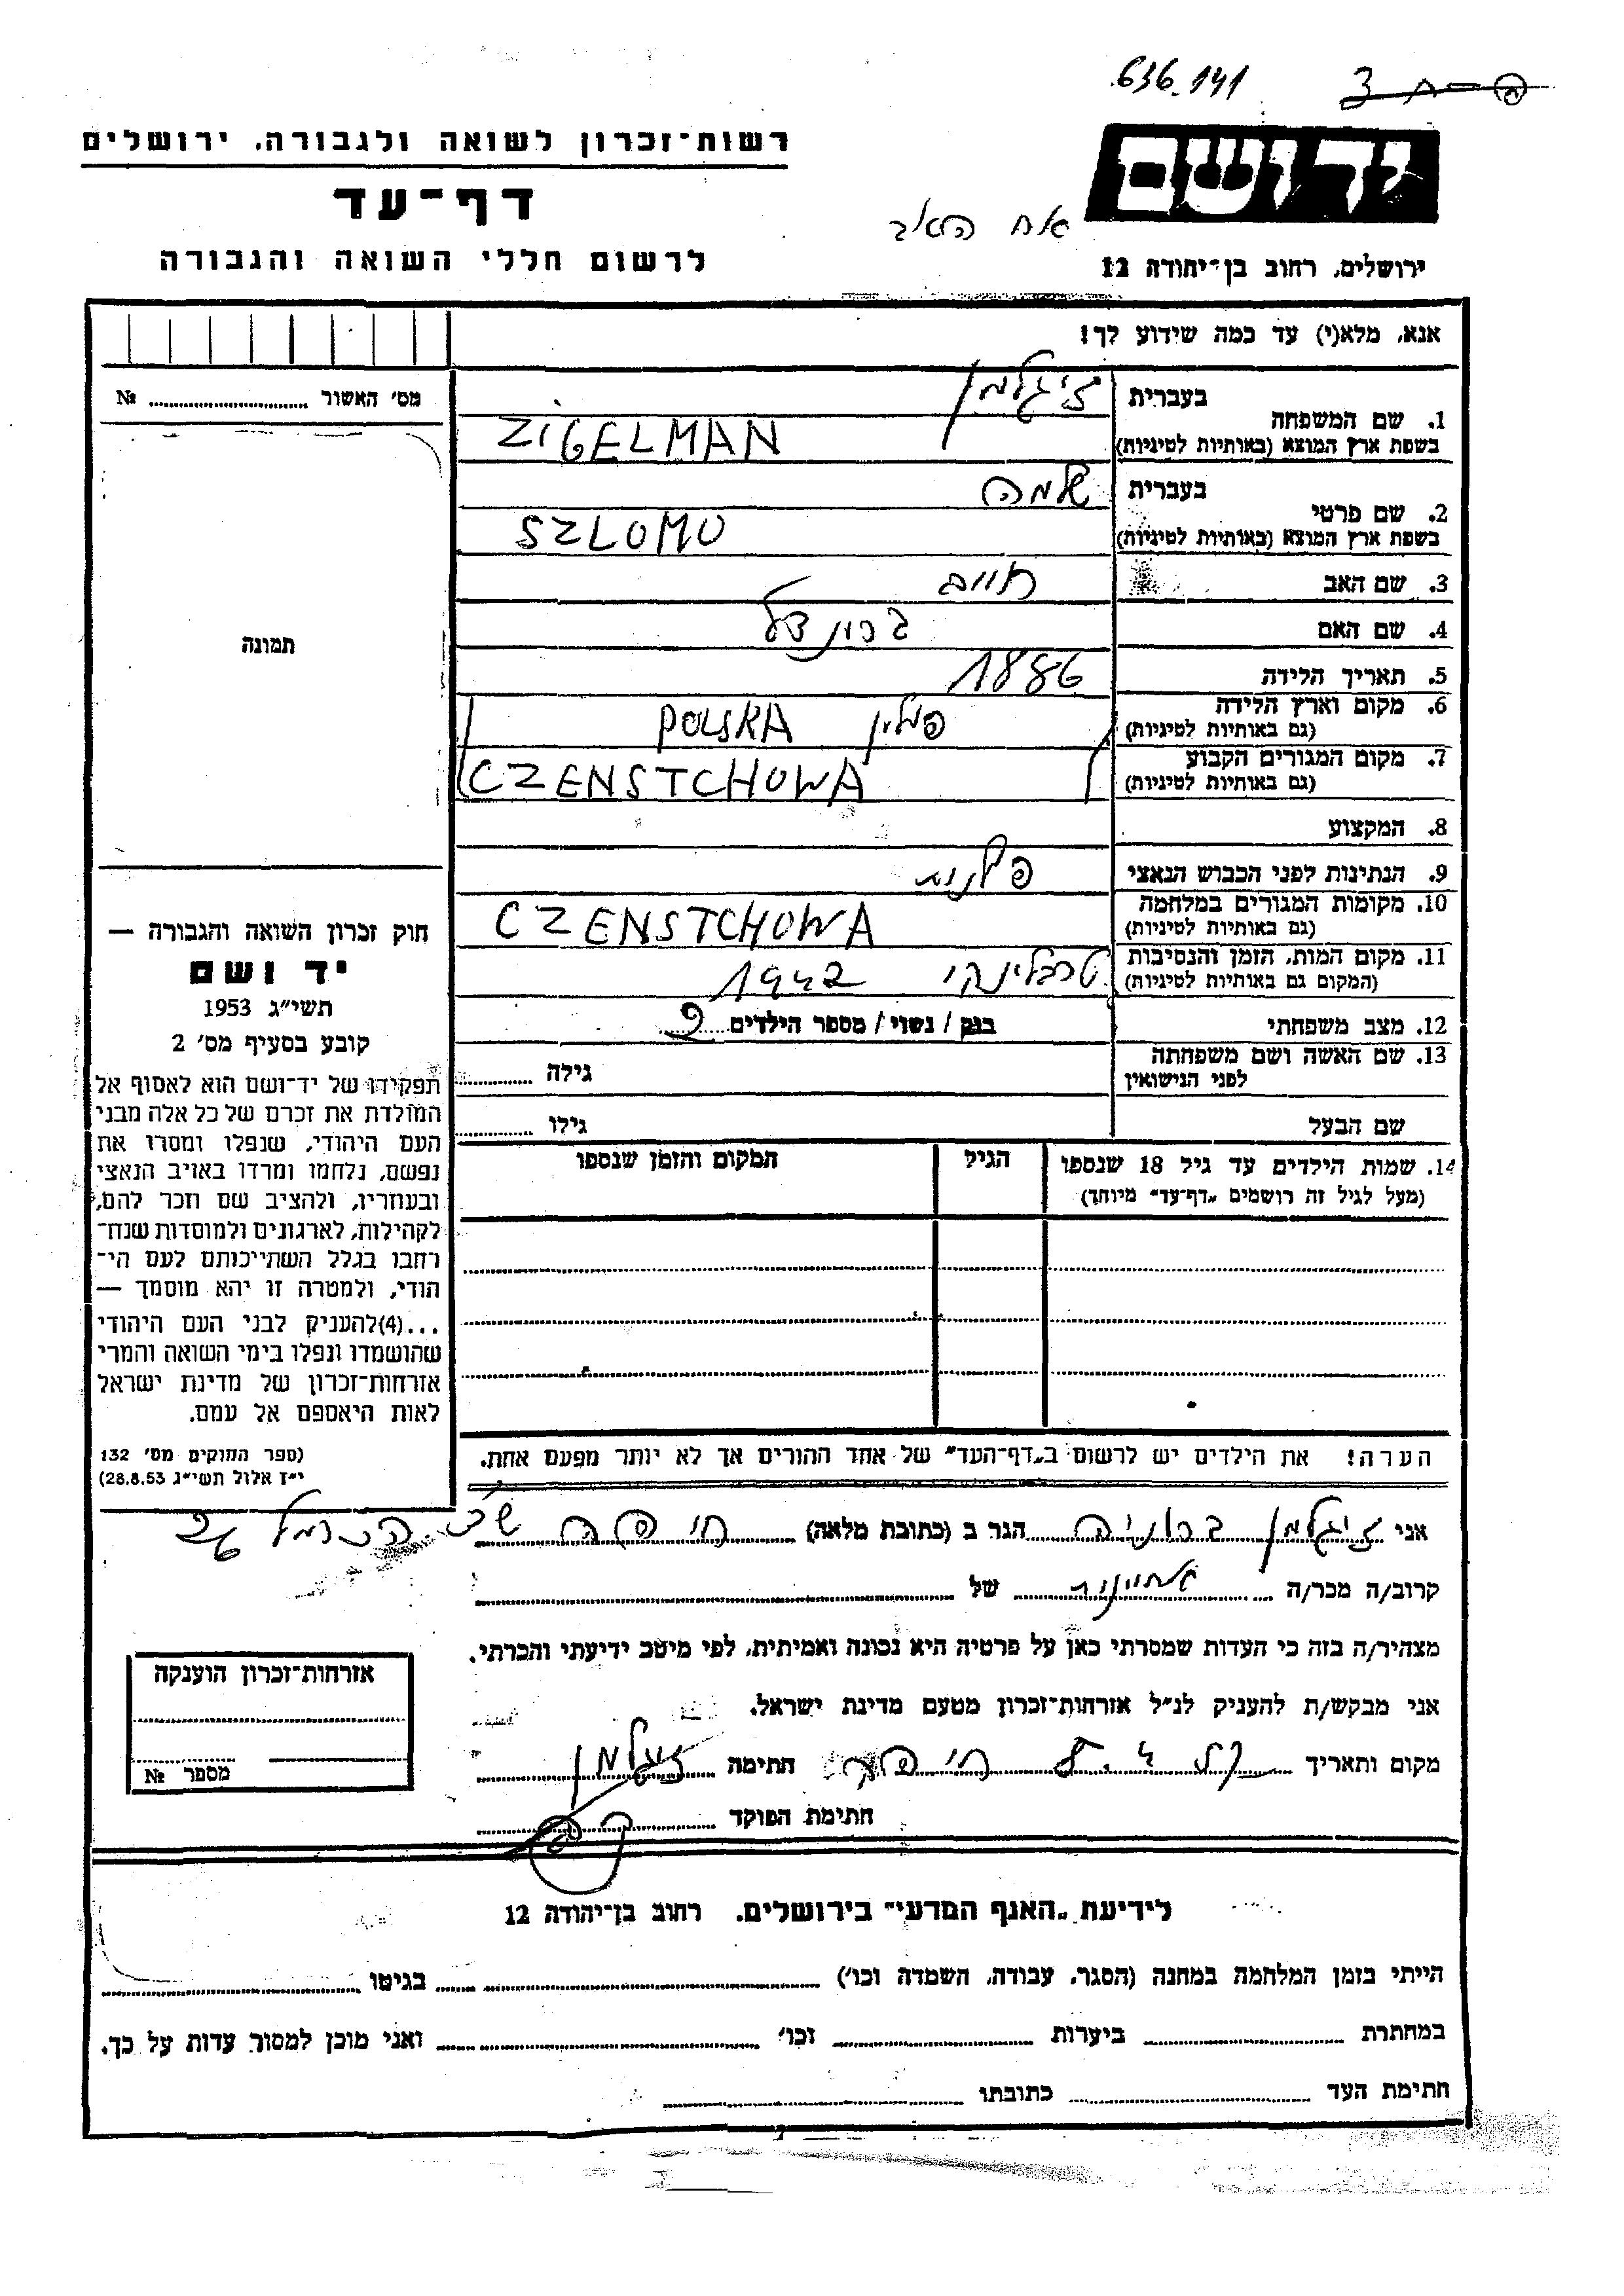 636.141
רשות-זכרון לשואה ולגבורה, ירושלים
יד ושם
דף-עד
אח האב
לרשום חללי השואה והגבורה
ירושלים, רחוב בן-יהודה 12
אנא, מלא(י) עד כמה שידוע לך!
מס' האשור № ........
1. שם המשפחה בעברית זיגלמן
בשפת ארץ המוצא (באותיות לטיניות) ZIGELMAN
2. שם פרטי בעברית שלמה
בשפת ארץ המוצא (באותיות לטיניות) SZLOMO
3. שם האב חיים
4. שם האם
תמונה
5. תאריך הלידה 1886
6. מקום וארץ הלידה (גם באותיות לטיניות) פולין POLSKA
7. מקום המגורים הקבוע (גם באותיות לטיניות) CZENSTCHOWA
8. המקצוע
9. הנתינות לפני הכבוש הנאצי פולנית
10. מקומות המגורים במלחמה (גם באותיות לטיניות) CZENSTCHOWA
11. מקום המות, הזמן והנסיבות (המקום גם באותיות לטיניות) טרבלינקי 1942
12. מצב משפחתי רווק / נשוי / מספר הילדים
13. שם האשה ושם משפחתה לפני הנישואין גילה ........
שם הבעל גילו ........
14. שמות הילדים עד גיל 18 שנספו הגיל המקום והזמן שנספו
(מעל לגיל זה רושמים „דף-עד" מיוחד)
הערה! את הילדים יש לרשום ב„דף-העד" של אחד ההורים אך לא יותר מפעם אחת.
חוק זכרון השואה והגבורה —
יד ושם
תשי"ג 1953
קובע בסעיף מס' 2
תפקידו של יד-ושם הוא לאסוף אל
המולדת את זכרם של כל אלה מבני
העם היהודי, שנפלו ומסרו את
נפשם, נלחמו ומרדו באויב הנאצי
ובעוזריו, ולהציב שם וזכר להם,
לקהילות, לארגונים ולמוסדות שנח-
רחבו בגלל השתייכותם לעם הי-
הודי, ולמטרה זו יהא מוסמך —
...(4)להעניק לבני העם היהודי
שהושמדו ונפלו בימי השואה והמרי
אזרחות-זכרון של מדינת ישראל
לאות היאספם אל עמם.
(ספר החוקים מס' 132
י"ז אלול תשי"ג 28.8.53)
אני זיגלמן ברוניה הגר ב (כתובת מלאה) חיפה הכרמל 26
קרוב/ה מכר/ה אחיינית של ........
מצהיר/ה בזה כי העדות שמסרתי כאן על פרטיה היא נכונה ואמיתית, לפי מיטב ידיעתי והכרתי.
אני מבקש/ת להעניק לנ"ל אזרחות-זכרון מטעם מדינת ישראל.
מקום ותאריך חיפה חתימה זיגלמן
חתימת הפוקד
אזרחות-זכרון הוענקה
מספר №
לידיעת „האגף המדעי" בירושלים, רחוב בן-יהודה 12
הייתי בזמן המלחמה במחנה (הסגר, עבודה, השמדה וכו') ........ בגיטו ........
במחתרת ........ ביערות ........ וכו' ........ ואני מוכן למסור עדות על כך.
חתימת העד ........ כתובתו ........